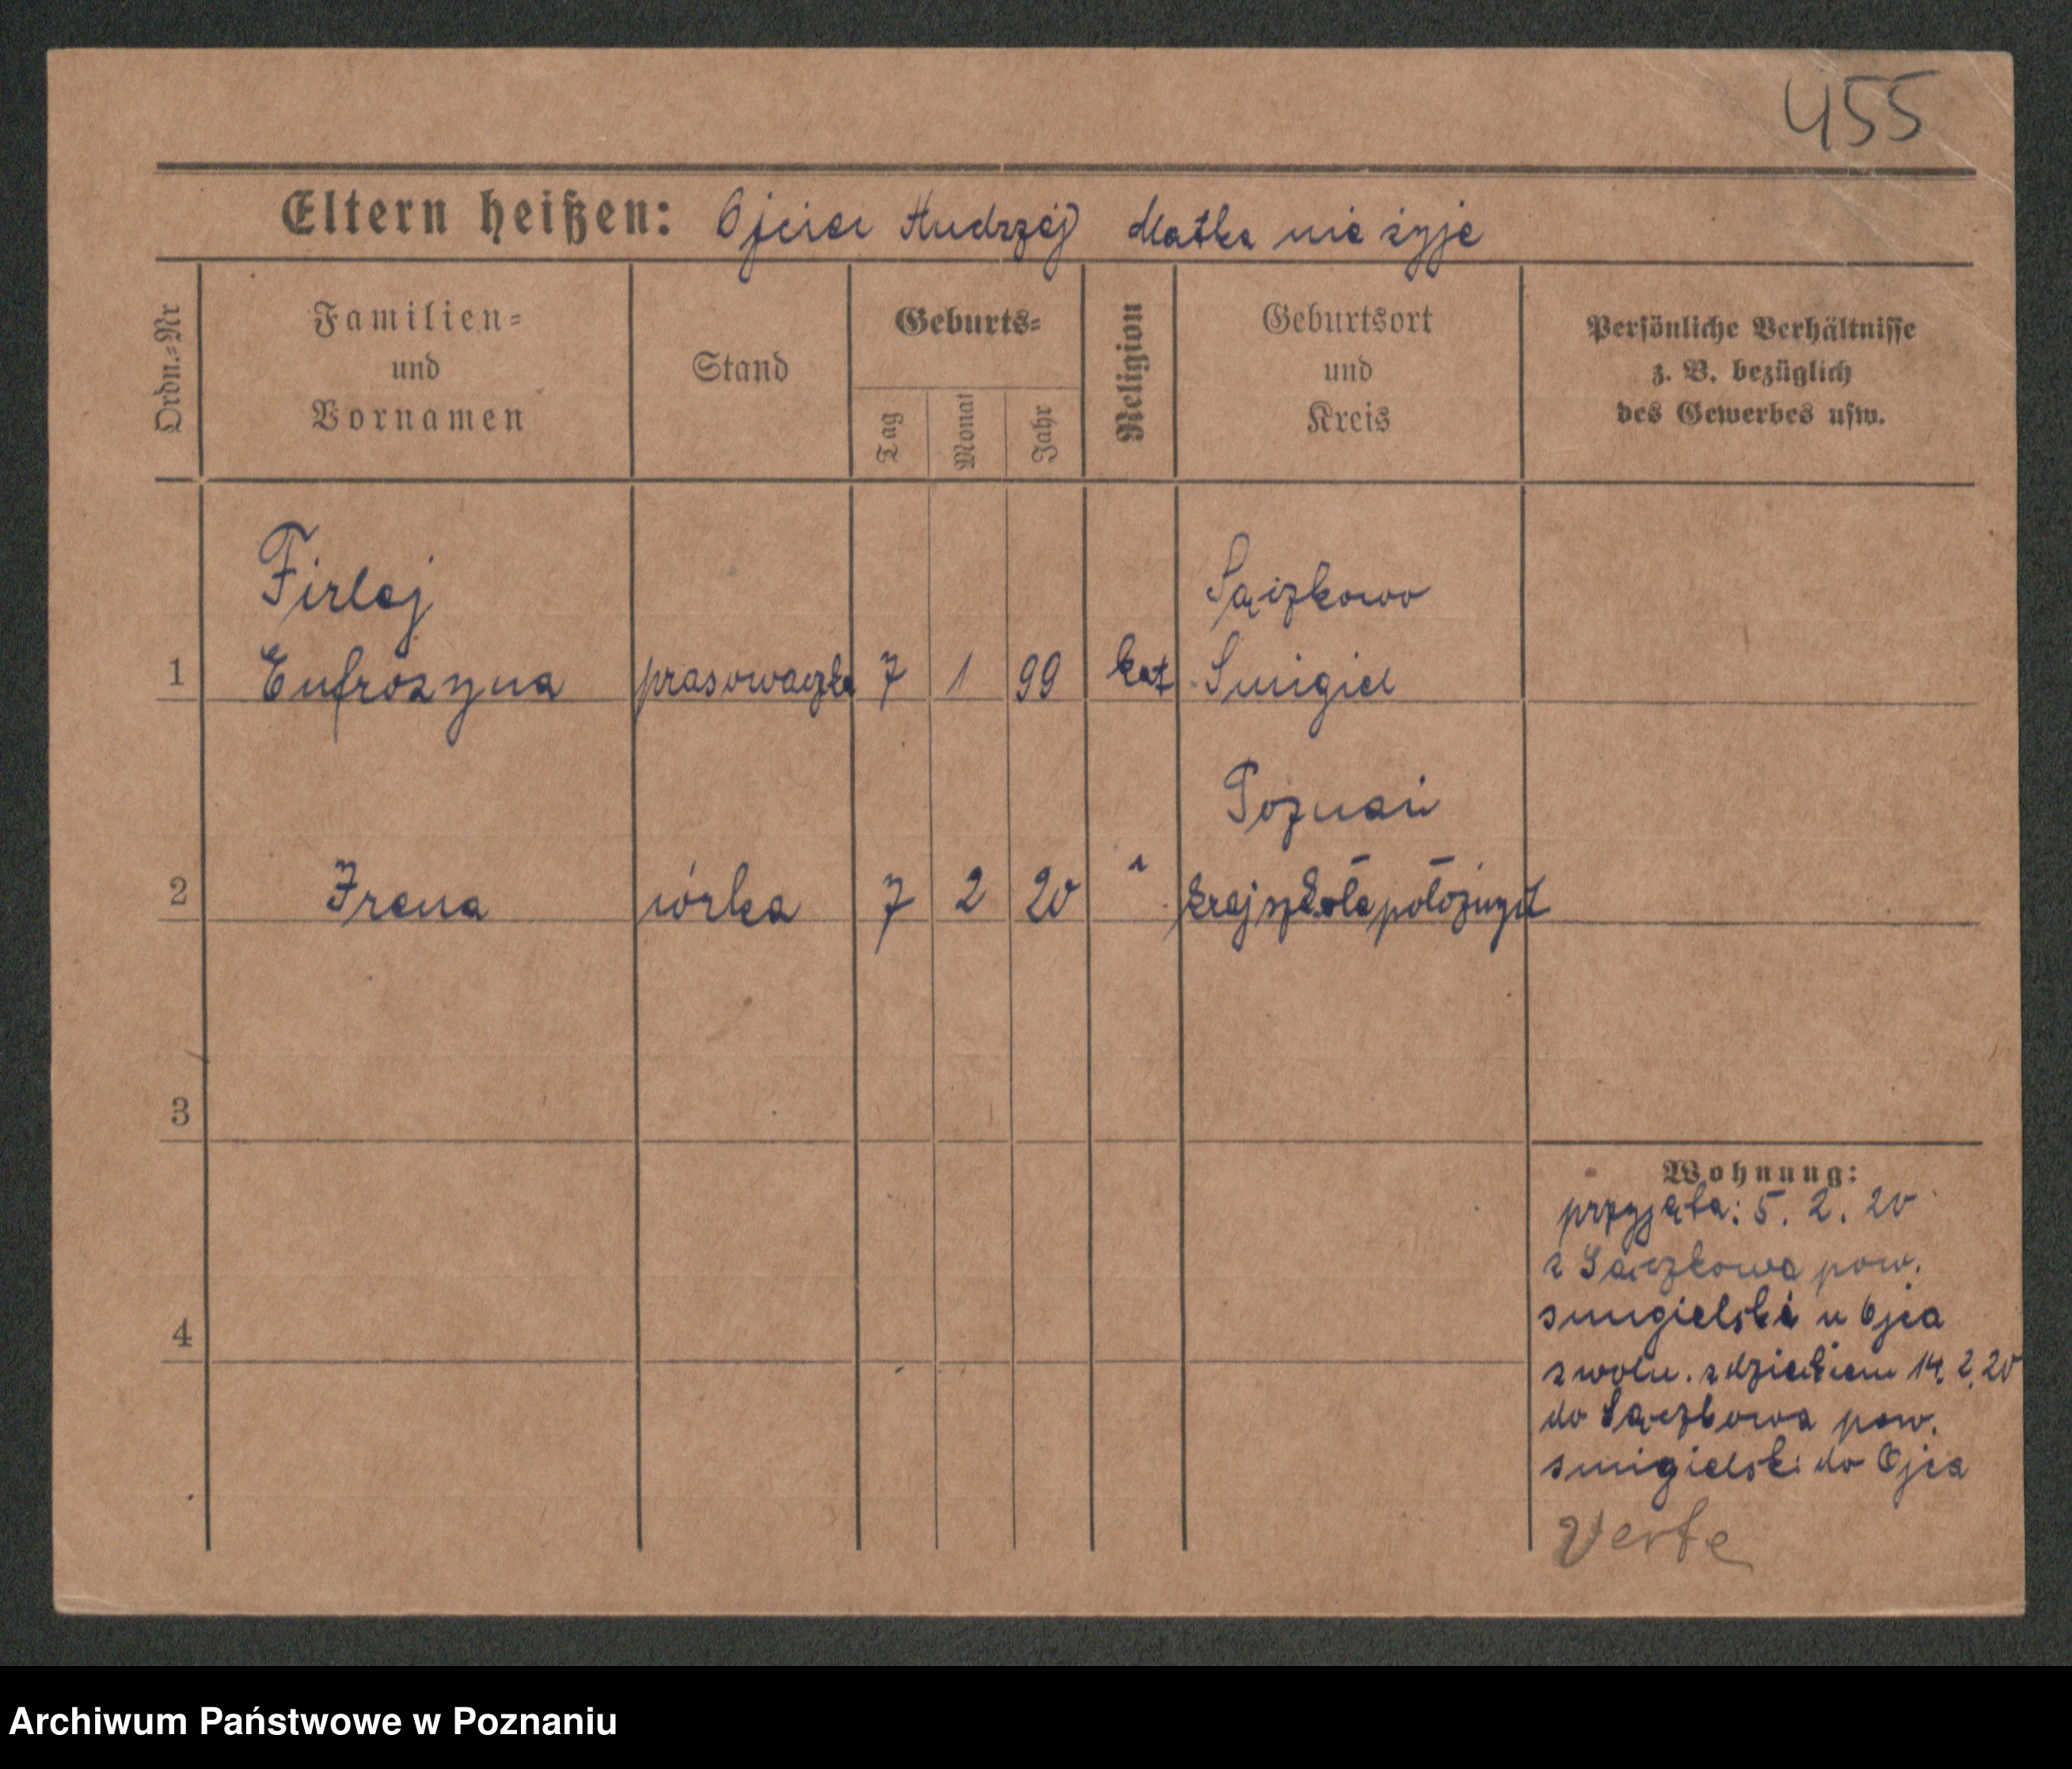 455
Eltern heißen: Ojciec Andrzej Matka nie żyje
Ordn.=Nr
Familien=
und
Vornamen
Stand
Geburts=
Tag
Monat
Jahr
Religion
Geburtsort
und
Kreis
Persönliche Verhältnisse
z. B. bezüglich
des Gewerbes usw.
Firlej Sączkowo
1 Eufrozyna prasowaczka 7 1 99 kat Smigiel
Poznań
2 Irena córka 7 2 20 " kraj szkoła położnych
3
4
Wohnung:
przyjęta: 5. 2. 20
z Sączkowa pow.
smigielski u Ojca
zwoln. z dzieckiem 14. 2. 20
do Sączkowa pow.
smigielski do Ojca
Verte
Archiwum Państwowe w Poznaniu